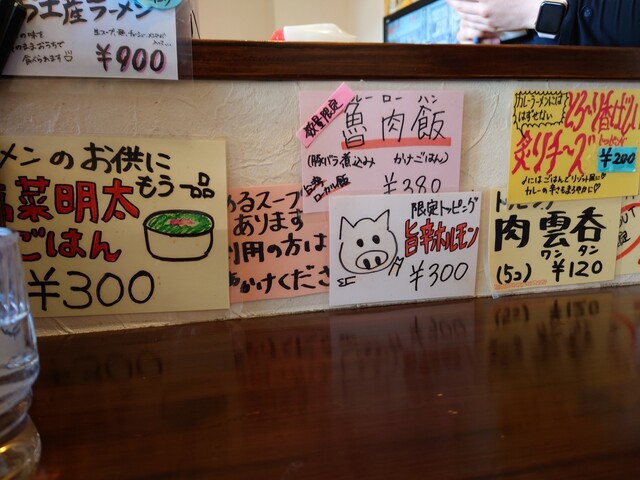 土産ラーメン
食べられます
¥900
メンのお供に
もう一品
菜明太
ごはん
¥300
めるスープ
あります
利用の方は
かけくださ
数量限定
ルーローハン
魯肉飯
(豚バラ煮込み かけごはん)
台湾
ローカル飯
¥380
限定トッピング
旨辛ホルモン
¥300
カレーラーメンには
はずせない
炙りチーズ
トッピング
¥200
〆にはごはんとリゾット風に♡
カレーの辛さもまろやかに♡
トッピング
肉雲呑
ワンタン
(5コ) ¥120